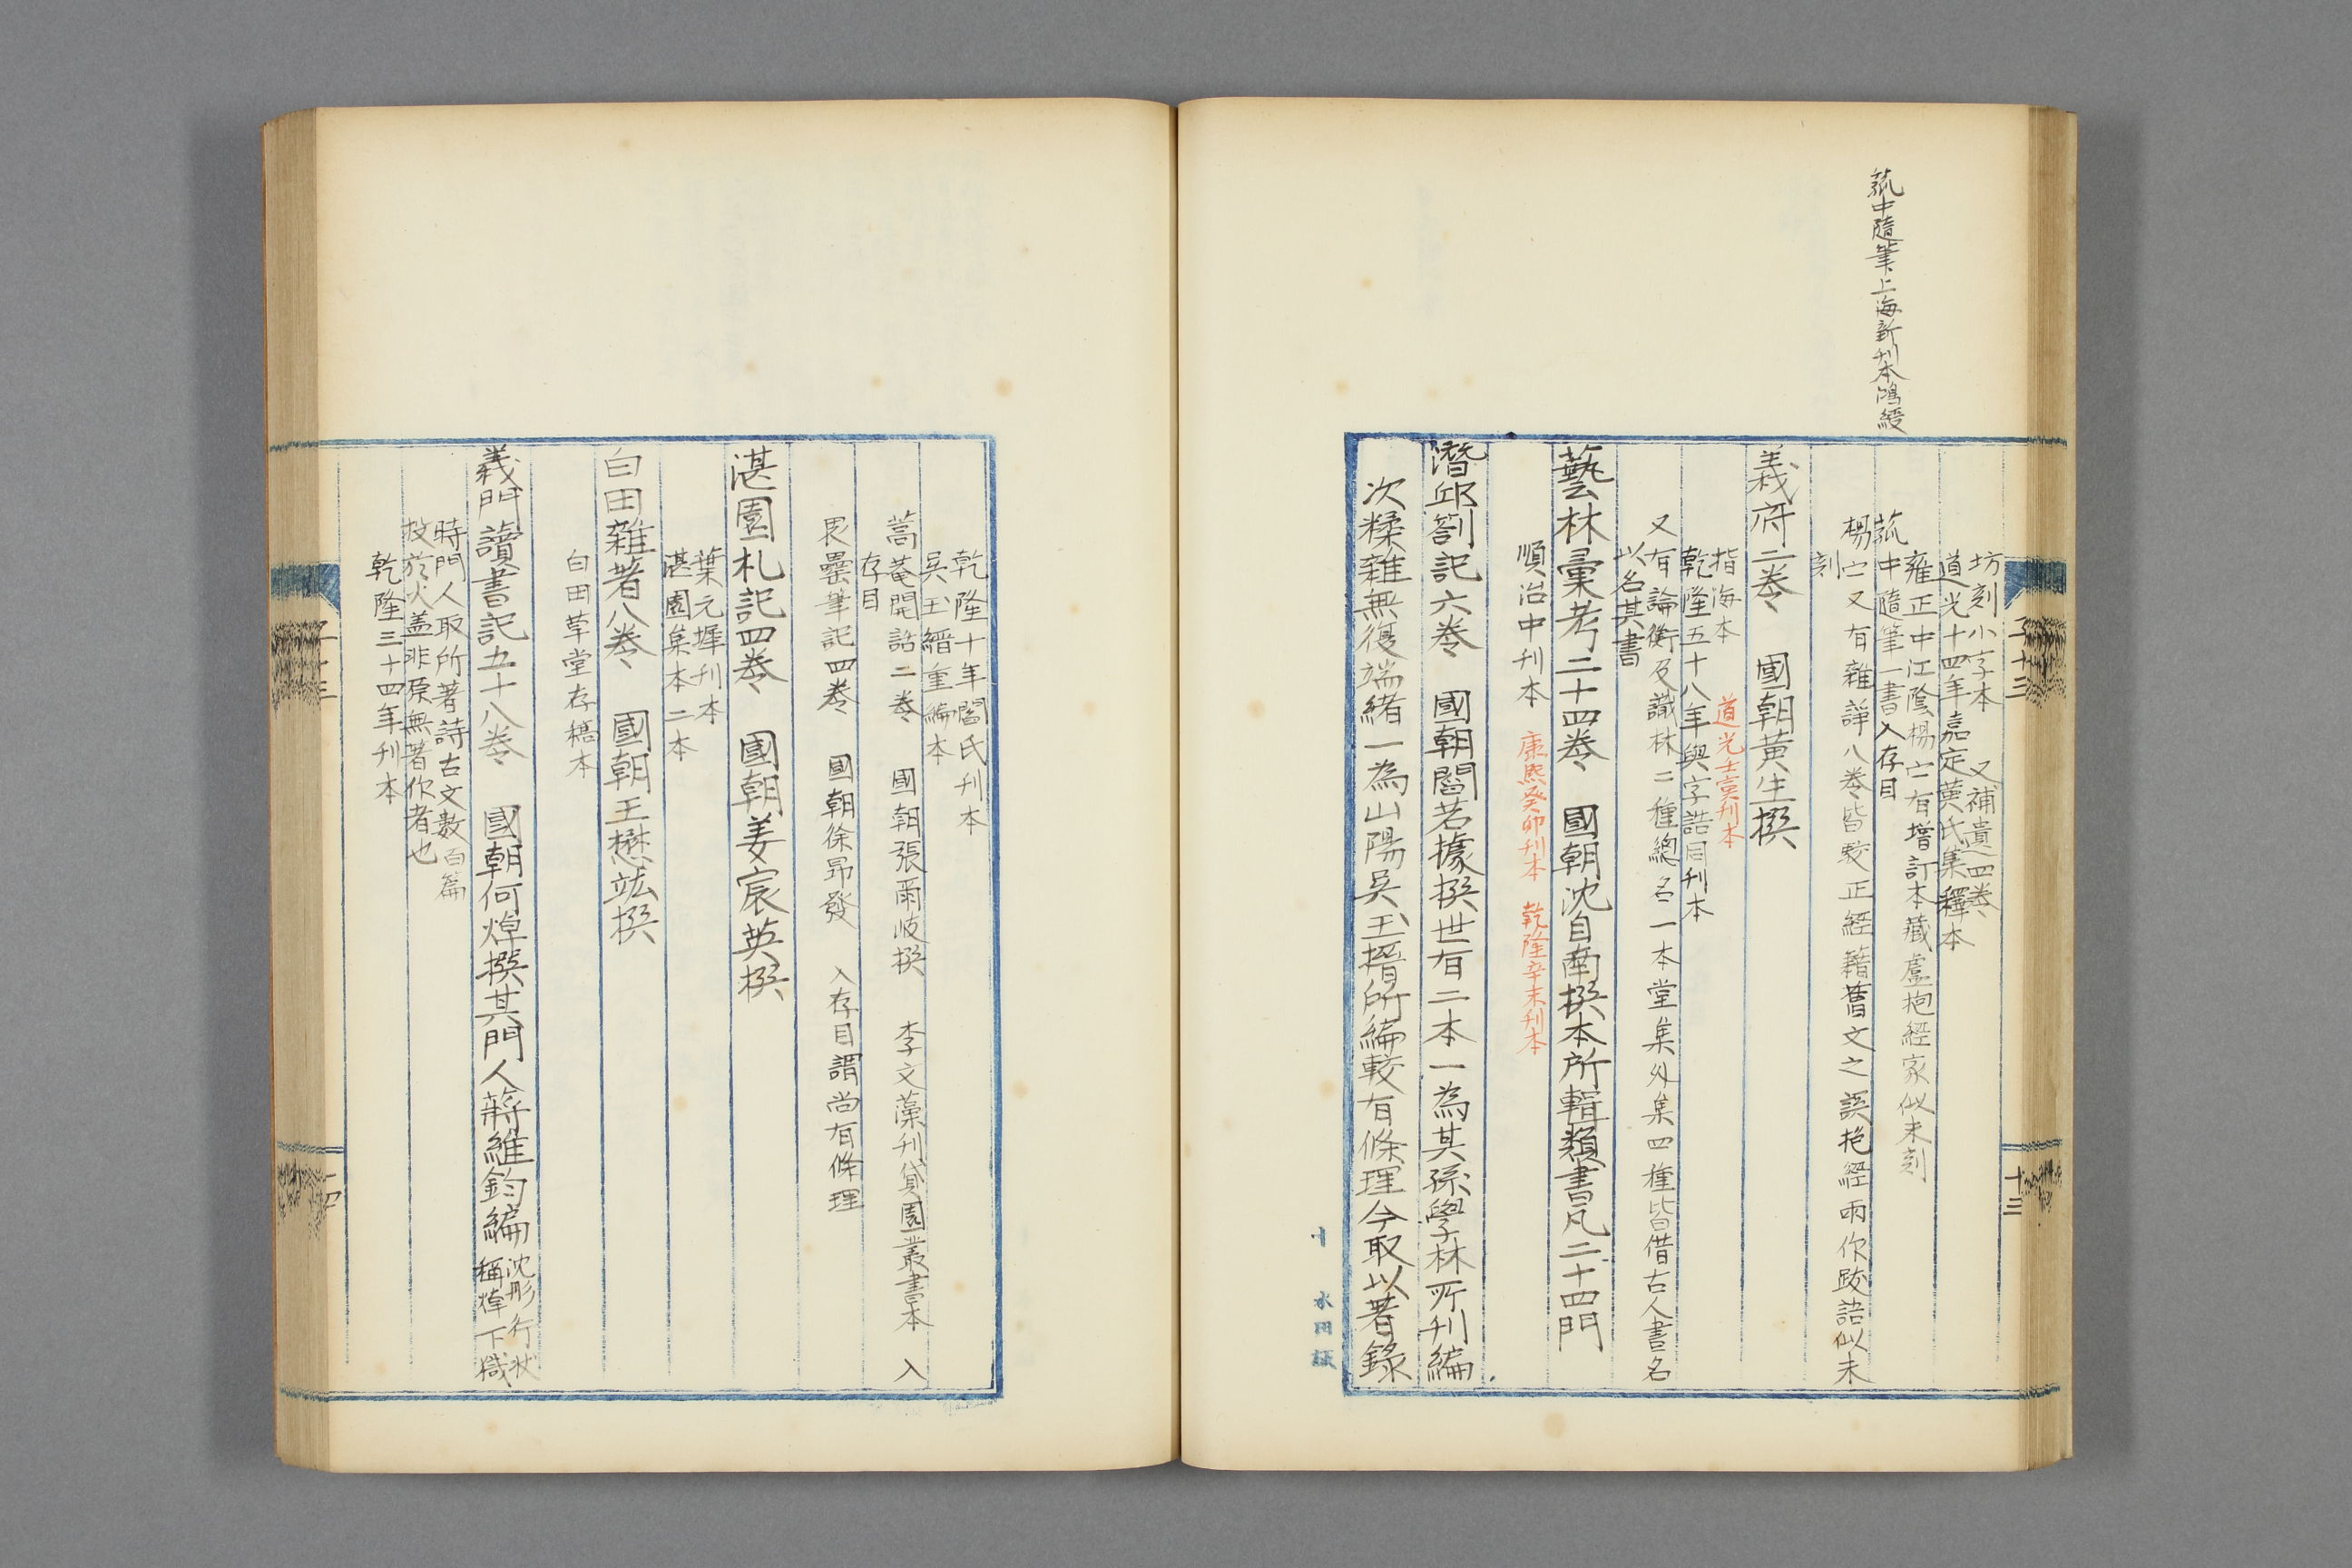 菰中隨筆上海新刊本鴻綬
子十三
十三
坊刻小字本　又補遺四巻
道光十四年嘉定黄氏集釋本
雍正中江陰楊亡有增訂本藏盧抱經家似未刻
菰中隨筆一書入存目
楊亡又有雜諍八巻皆駮正經藉舊文之誤抱經兩作跋語似未
刻
義府二巻　國朝黄生撰
指海本　道光壬寅刊本
乾隆五十八年與字詁同刊本
又有論衡及識林二種總名一本堂集外集四種皆借古人書名
以名其書
藝林彙考二十四巻　國朝沈自南撰本所輯類書凡二十四門
順治中刊本　康熙癸卯刊本　乾隆辛未刊本
潛邱劄記六巻　國朝閻若據撰世有二本一為其孫學林所刊編
次糅雜無復端緒一為山陽吳玉搢所編較有條理今取以著錄
乾隆十年閻氏刊本
吳玉縉重編本
蒿菴閒話二巻　國朝張爾岐撰　李文藻刊貸園叢書本　入
存目
畏壘筆記四巻　國朝徐昂發　入存目謂尚有條理
湛園札記四巻　國朝姜宸英撰
葉元墀刊本
湛園集本二本
白田雜著八巻　國朝王懋竑撰
白田草堂存稿本
義門讀書記五十八巻　國朝何焯撰其門人蔣維鈞編 沈彤行狀
稱焯下獄
時門人取所著詩古文數百篇
投於火盖非原無著作者也
乾隆三十四年刊本
十四